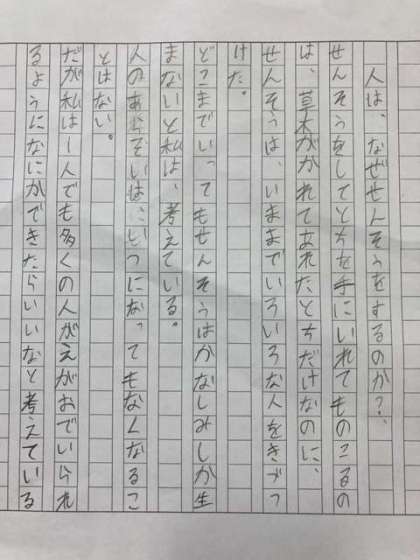 人は、なぜせんそうをするのか?、
せんそうをしてとちを手にいれてものこるの
は、草木がかれてあれたとちだけなのに、
せんそうは、いままでいろいろな人をきづつ
けた。
どこまでいってもせんそうはかなしみしか生
まないと私は、考えている。
人のあらそいは、いつになってもなくなるこ
とはない。
だが私は1人でも多くの人がえがおでいられ
るようになにかできたらいいなと考えている